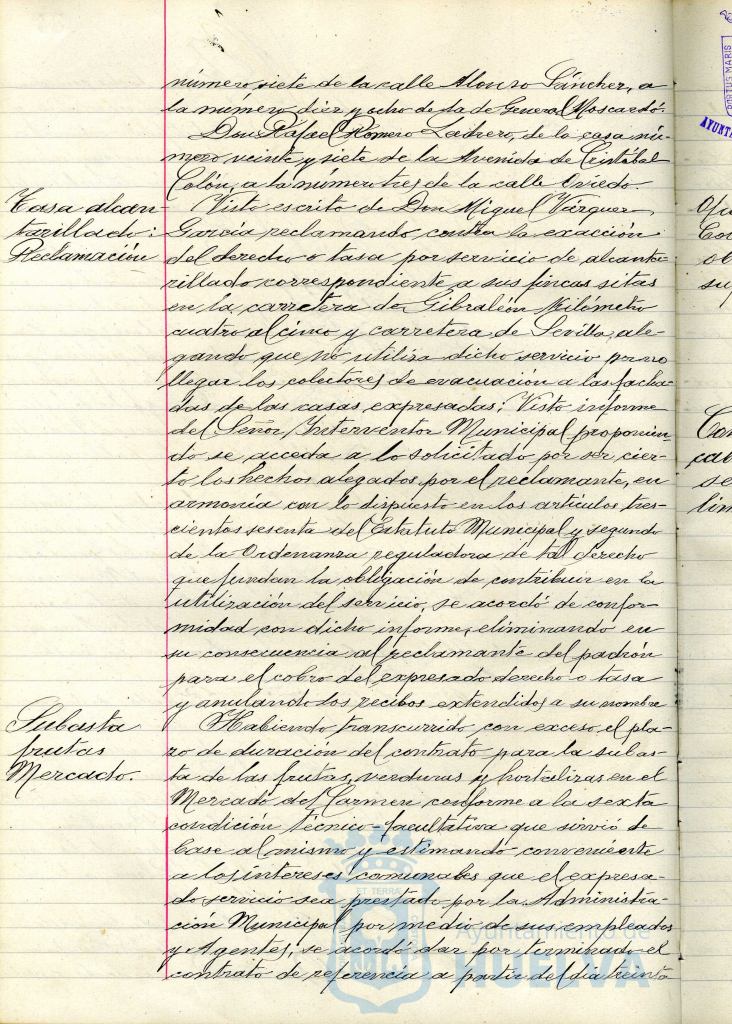 número siete de la calle Alonso Sánchez, a
la número diez y ocho de la de General Moscardó.
Don Rafael Romero Ladrero, de la casa nú-
mero veinte y siete de la Avenida de Cristóbal
Colón, a la número tres de la calle Oviedo.
Tasa alcan-
tarillado:
Reclamación
Visto escrito de Don Miguel Vázquez
García reclamando contra la exacción
del derecho o tasa por servicio de alcanta-
rillado correspondiente a sus fincas sitas
en la carretera de Gibraleón Kilómetro
cuatro al cinco y carretera de Sevilla, ale-
gando que no utiliza dicho servicio por no
llegar los colectores de evacuación a las facha-
das de las casas expresadas; Visto informe
del Señor Interventor Municipal proponien-
do se acceda a lo solicitado por ser cier-
to los hechos alegados por el reclamante, en
armonía con lo dispuesto en los artículos tres-
cientos sesenta del Estatuto Municipal y segundo
de la Ordenanza reguladora de tal derecho
que fundan la obligación de contribuir en la
utilización del servicio, se acordó de confor-
midad con dicho informe, eliminando en
su consecuencia al reclamante del padrón
para el cobro del expresado derecho o tasa
y anulando los recibos extendidos a su nombre
Subasta
frutas
Mercado.
Habiendo transcurrido con exceso el pla-
zo de duración del contrato para la subas-
ta de las frutas, verduras y hortalizas en el
Mercado del Carmen conforme a la sexta
condición técnico-facultativa que sirvió de
base al mismo y estimando conveniente
a los intereses comunales que el expresa-
do servicio sea prestado por la Administra-
ción Municipal por medio de sus empleados
y Agentes, se acordó dar por terminado el
contrato de referencia a partir del día treinta
ET TERRAE
Ayuntamiento de
HUELVA
PORTUS MARIS